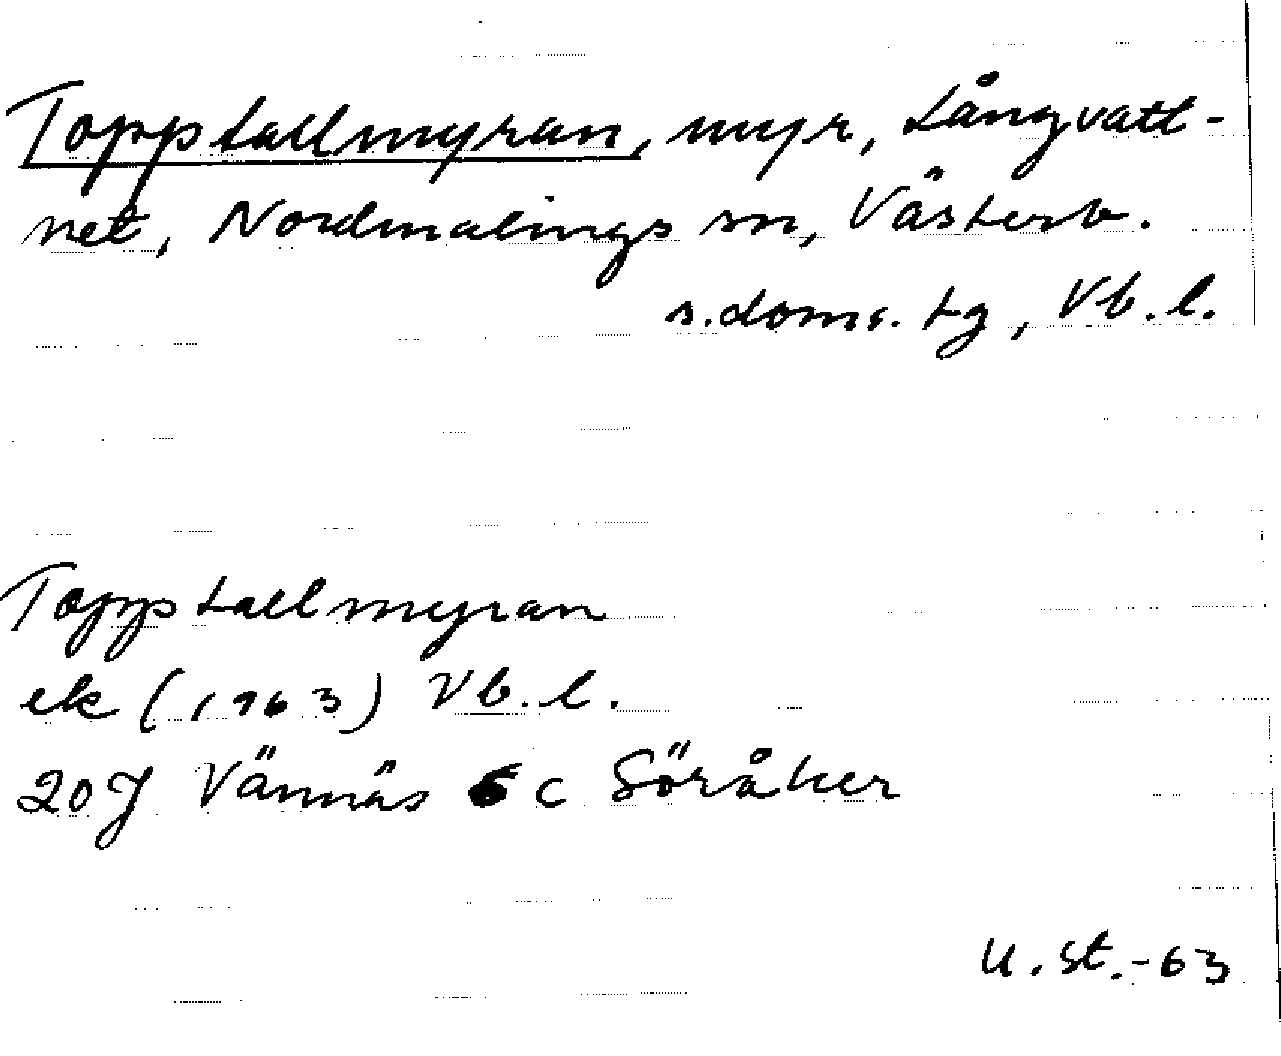 Topptallmyran, myr, Långvatt-
net, Nordmalings sn, Västerb.
s. doms. tg, Vb. l.
Topptallmyran
ek (1963) Vb. l.
20J Vännäs 6 c Söråker
U. St.-63